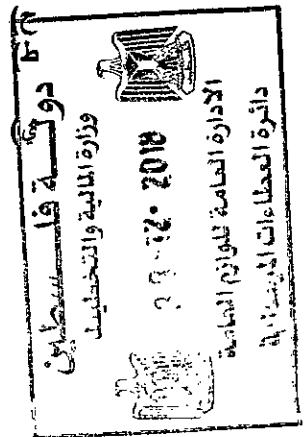 دولة فلسطين
وزارة المالية والتخطيط
12. 2018
الادارة العامة للوازم العامة
دائرة العطاءات المركزية